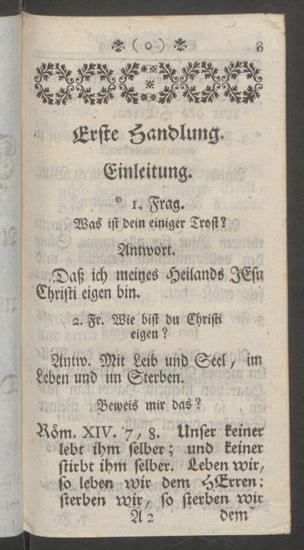 ( o )
Erste Handlung.
Einleitung.
* 1. Frag.
Was ist dein einiger Trost?
Antwort.
Daß ich meines Heilands JEsu
Christi eigen bin.
2. Fr. Wie bist du Christi
eigen?
Antw. Mit Leib und Seel, im
Leben und im Sterben.
Beweis mir das?
Röm. XIV. 7, 8. Unser keiner
lebt ihm selber; und keiner
stirbt ihm selber. Leben wir,
so leben wir dem HErren:
sterben wir, so sterben wir
A 2 dem